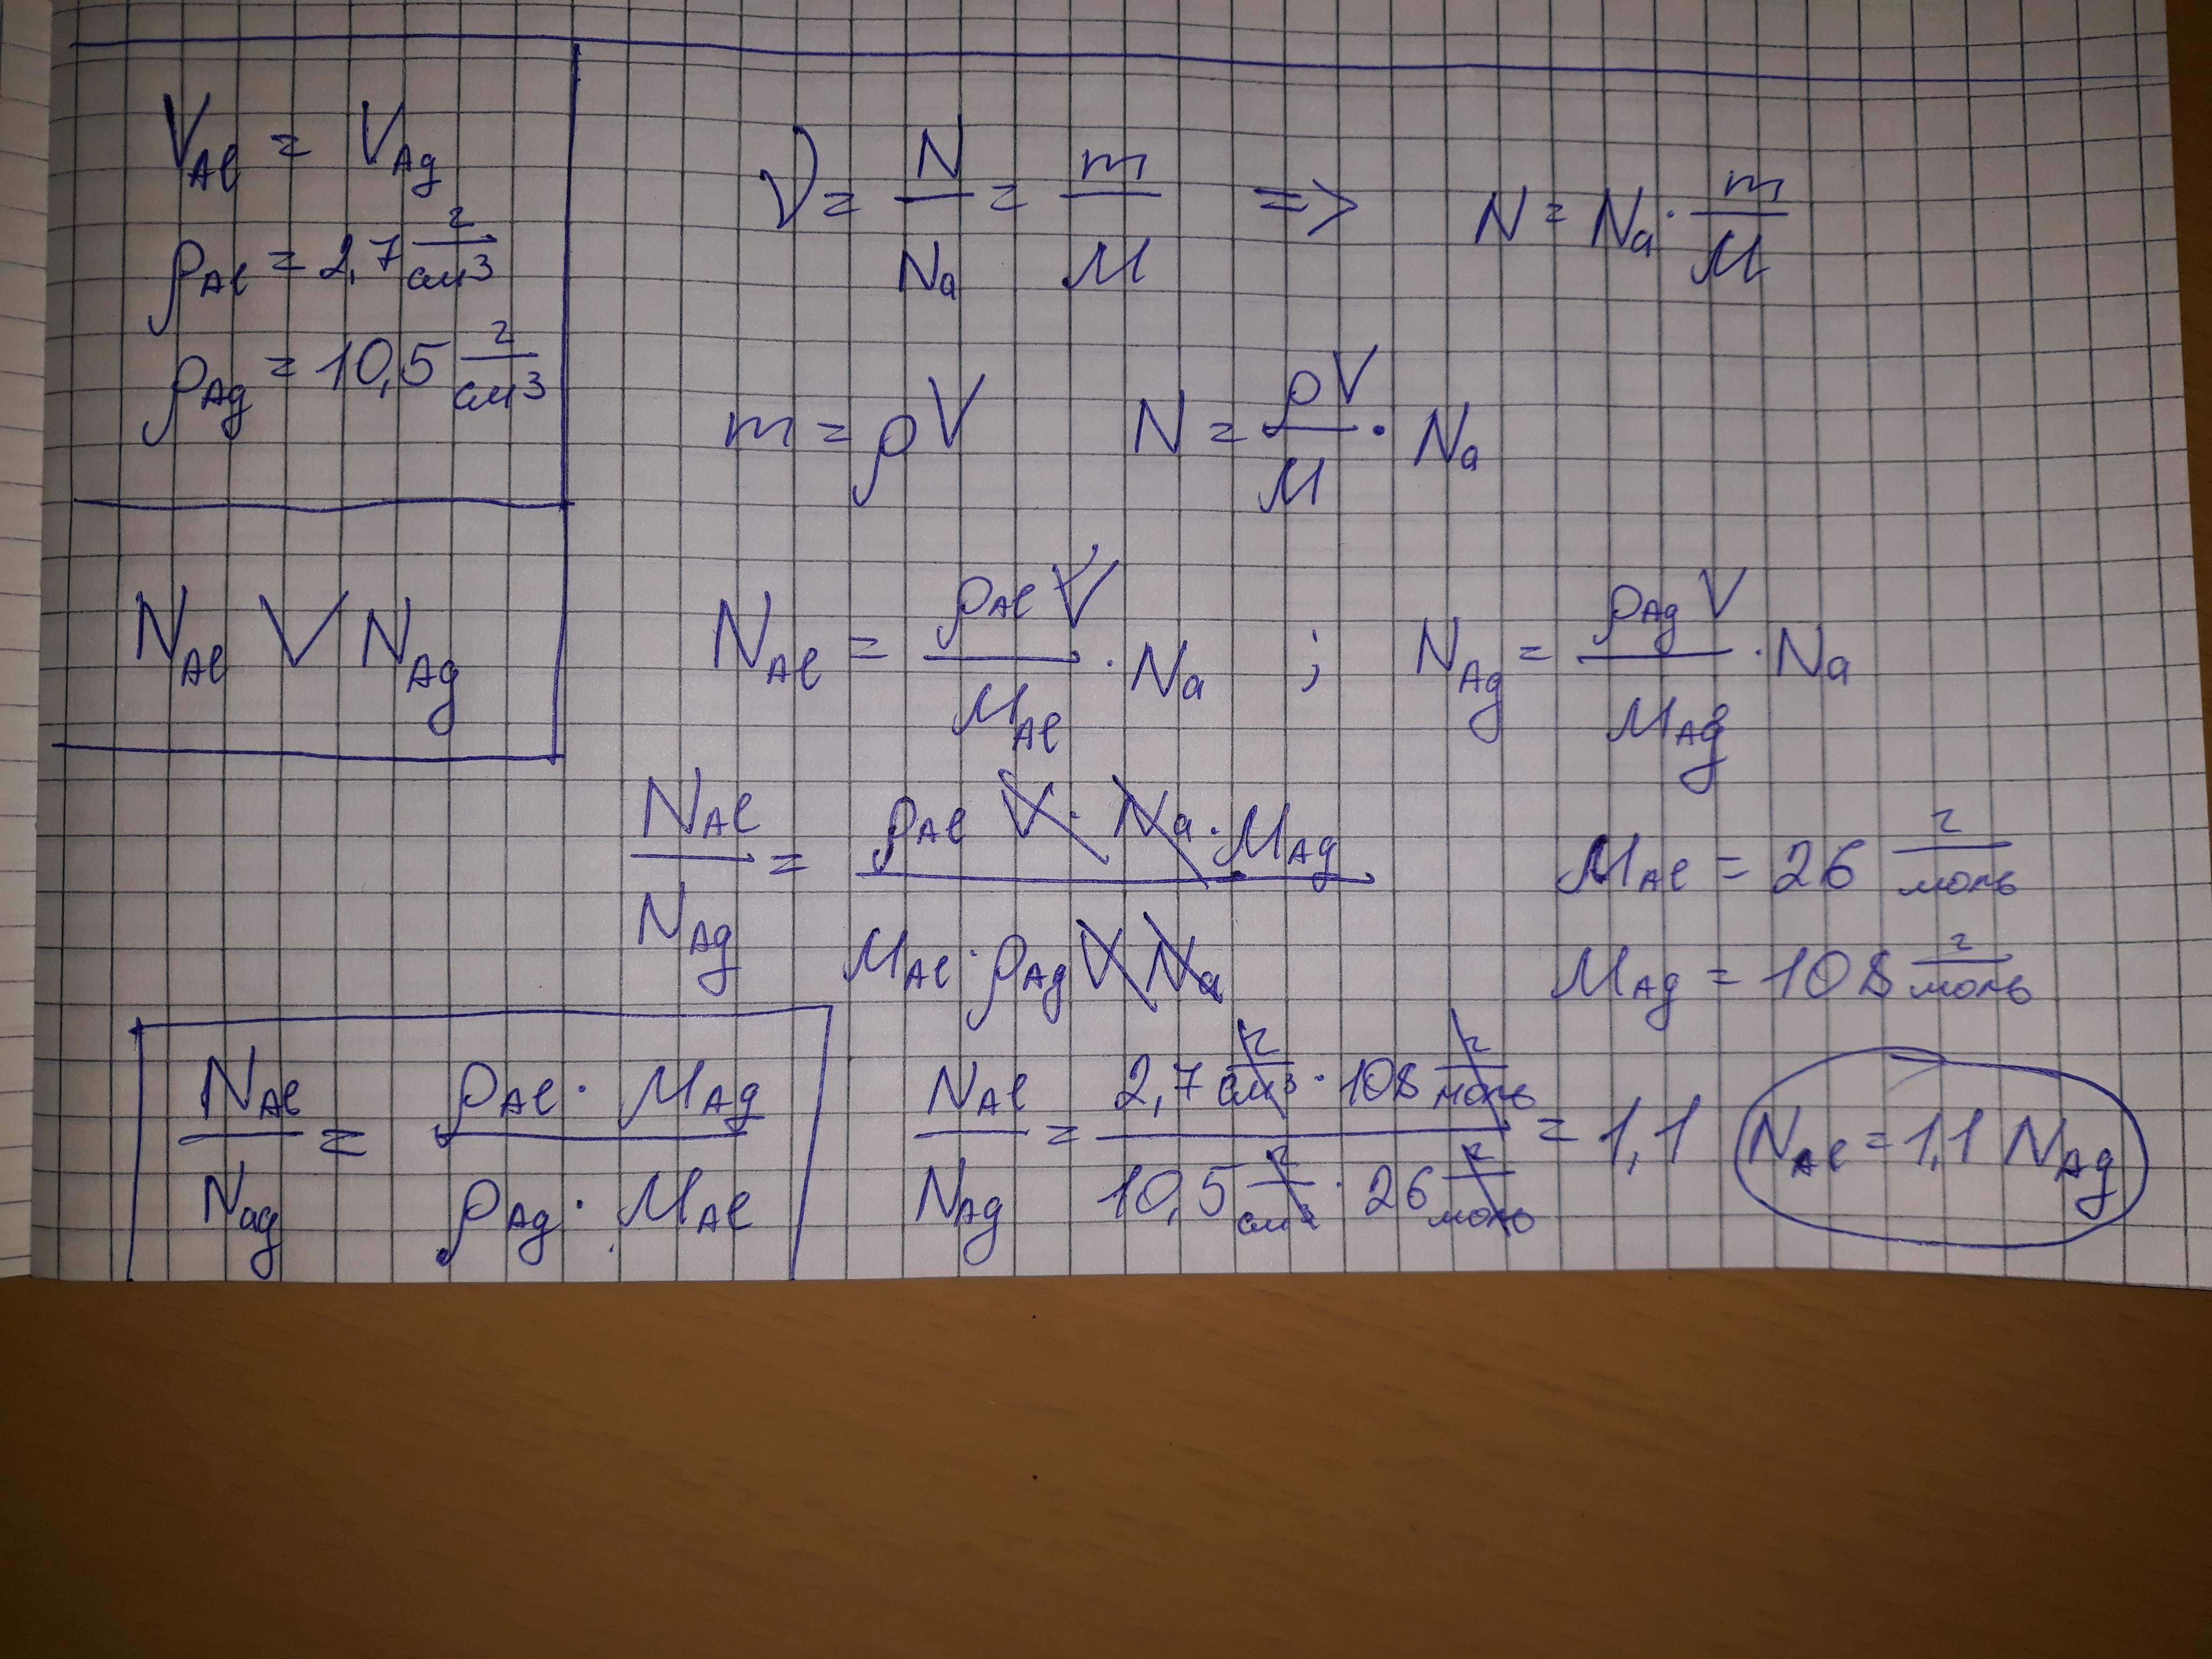 V_Al = V_Ag
ρ_Al = 2,7 г/см³
ρ_Ag = 10,5 г/см³
N_Al V N_Ag
ν = N/Na = m/M => N = Na · m/M
m = ρV N = ρV/M · Na
N_Al = ρ_Al V/M_Al · Na ; N_Ag = ρ_Ag V/M_Ag · Na
N_Al/N_Ag = ρ_Al V · Na · M_Ag / M_Al · ρ_Ag V Na
M_Al = 26 г/моль
M_Ag = 108 г/моль
N_Al/N_ag = ρ_Al · M_Ag / ρ_Ag · M_Al
N_Al/N_Ag = 2,7 г/см³ · 108 г/моль / 10,5 г/см³ · 26 г/моль = 1,1
N_Al = 1,1 N_Ag